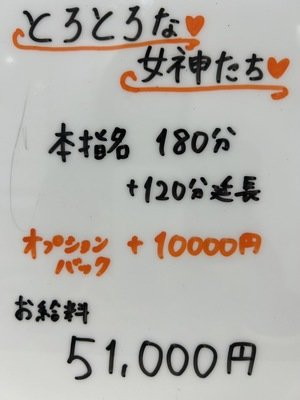 とろとろな♥
女神たち♥
本指名 180分
+120分延長
オプション
バック + 10000円
お給料
51,000円